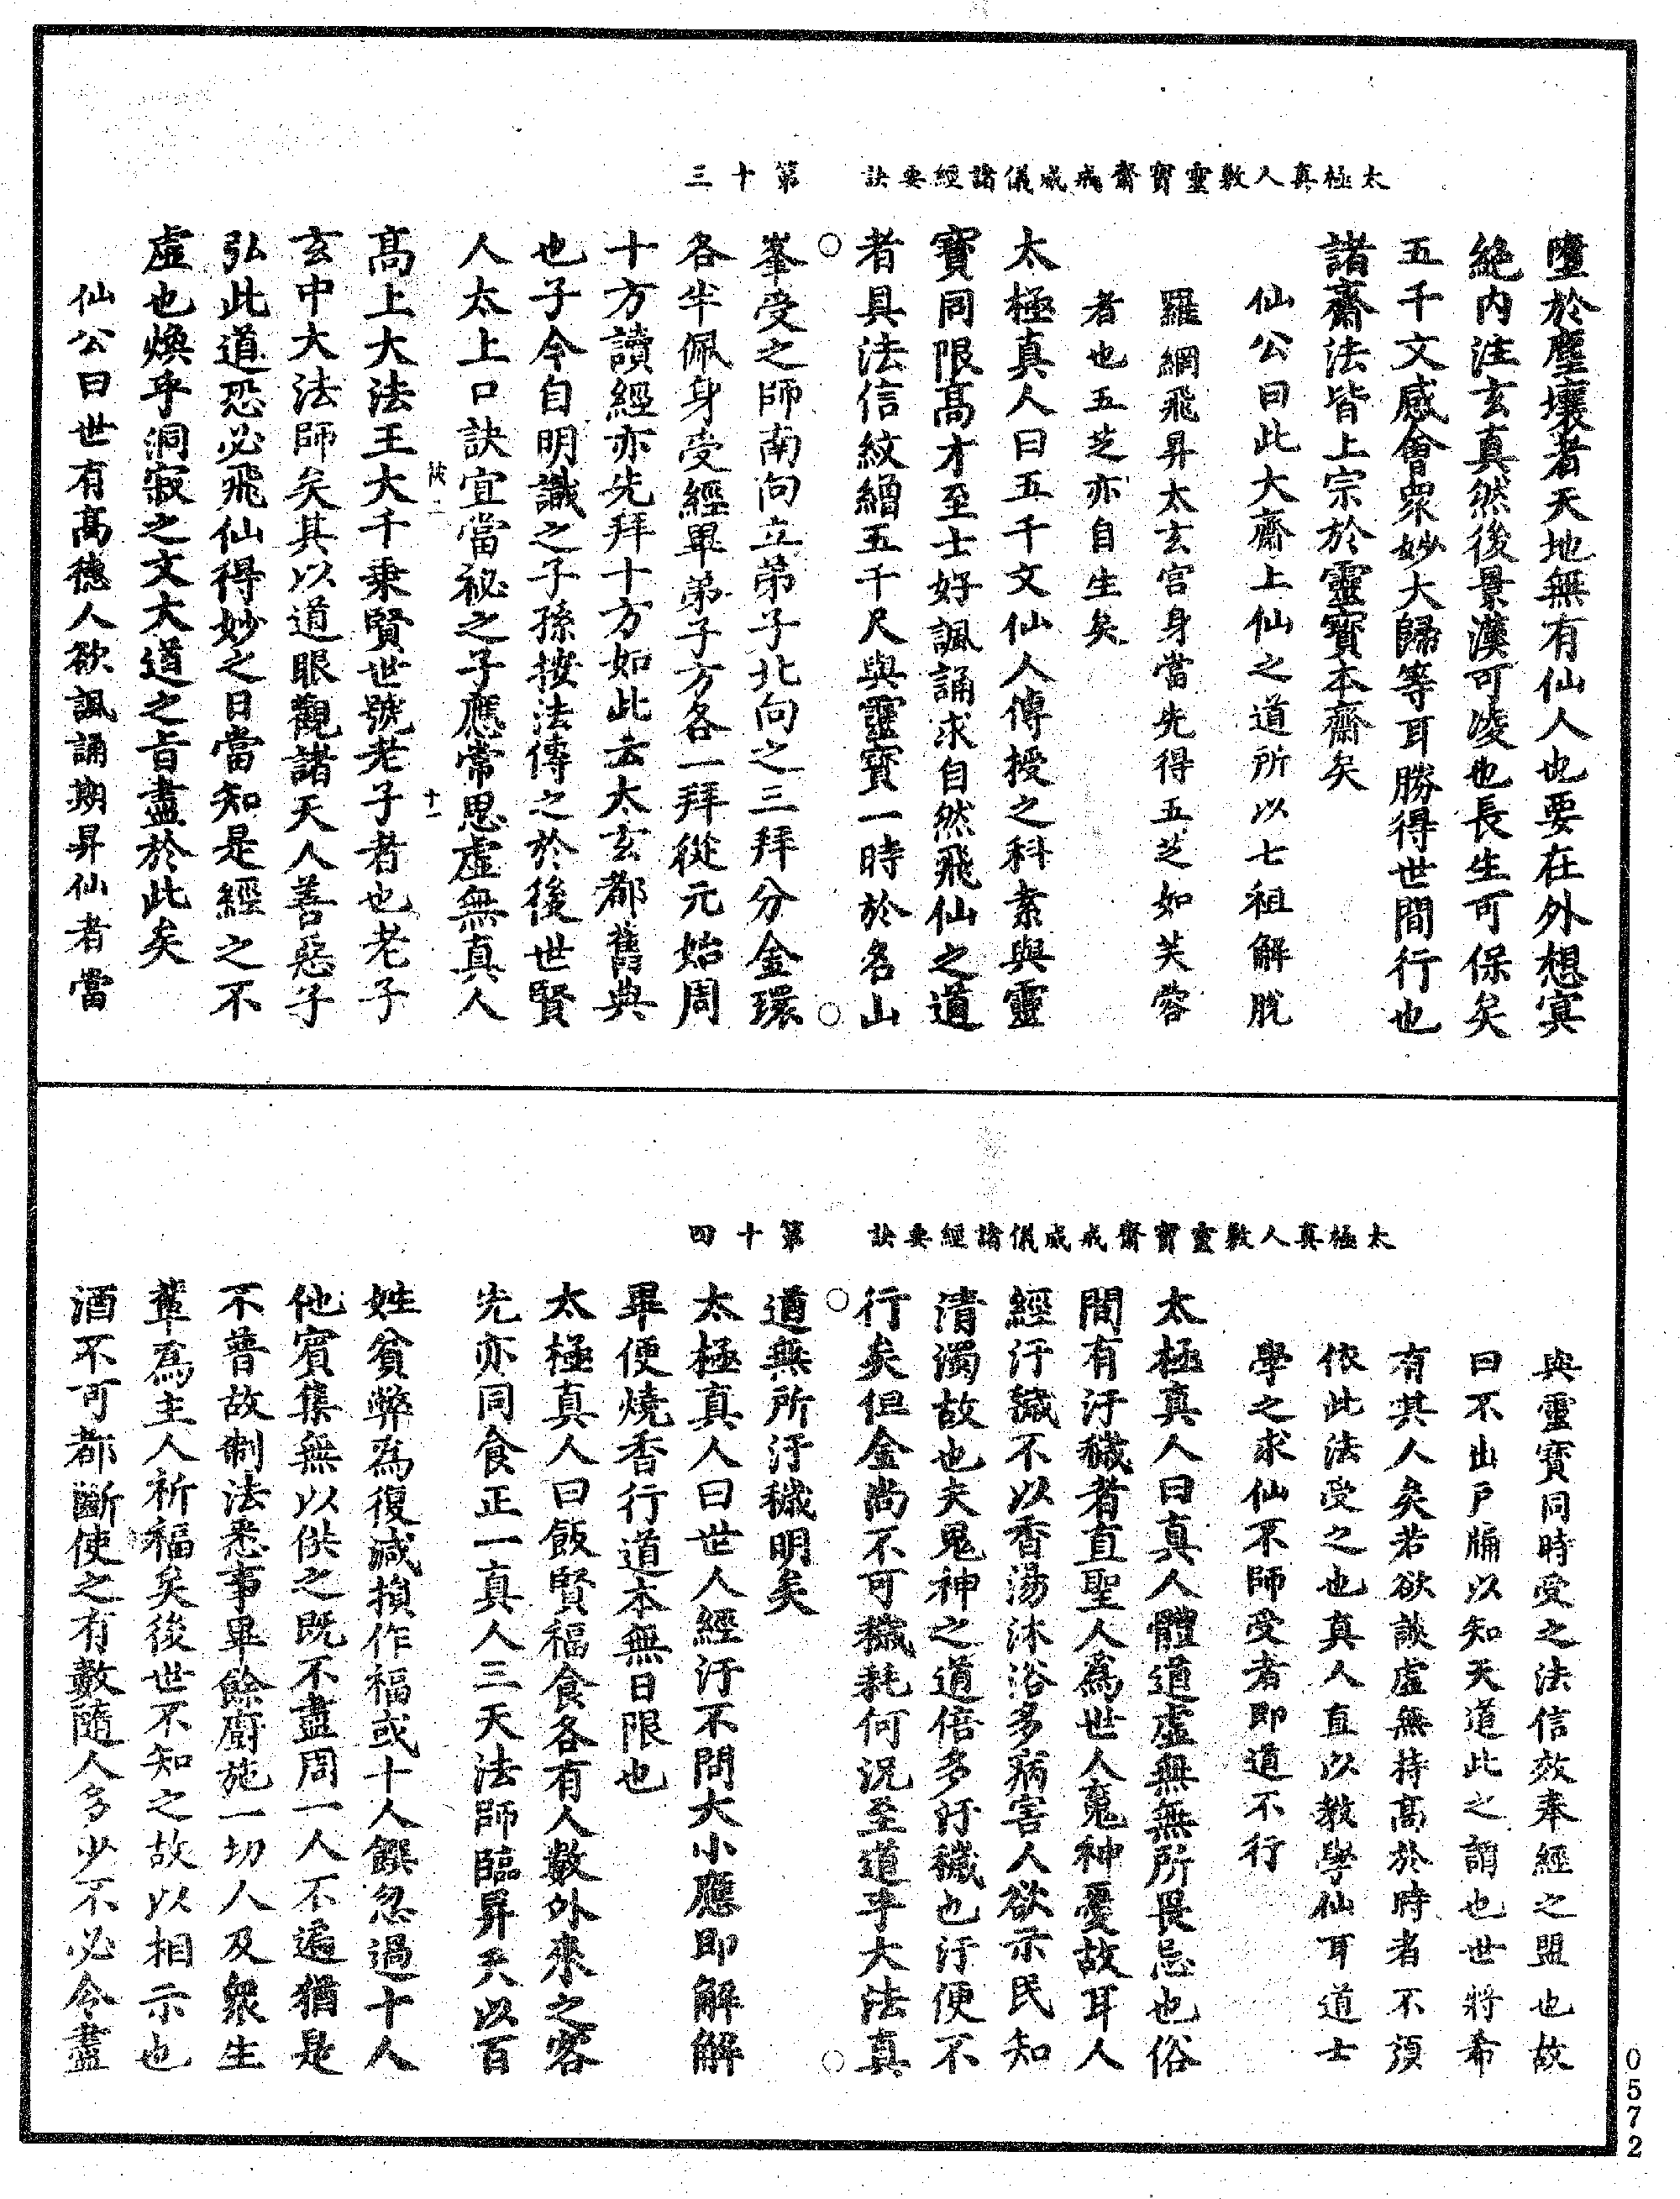 太極真人敷靈寶齋戒威儀諸經要訣　第十三
墮於塵壤者天地無有仙人也要在外想寞
絕內注玄真然後景漢可凌也長生可保矣
五千文感會衆妙大歸等耳勝得世間行也
諸齋法皆上宗於靈寶本齋矣
仙公曰此大齋上仙之道所以七祖解脫
羅網飛昇太玄宫身當先得五芝如芙蓉
者也五芝亦自生矣
太極真人曰五千文仙人傳授之科素與靈
寶同限高才至士好諷誦求自然飛仙之道
者具法信紋繒五千尺與靈寶一時於名山
峯受之師南向立弟子北向之三拜分金環
各半佩身受經畢弟子方各一拜從元始周
十方讀經亦先拜十方如此去太玄都舊典
也子今自明識之子孫按法傳之於後世賢
人太上口訣宜當祕之子應常思虛無真人
陜二　十一
高上大法王大千乘賢世號老子者也老子
玄中大法師矣其以道眼觀諸天人善惡子
弘此道恐必飛仙得妙之日當知是經之不
虛也煥乎洞寂之文大道之旨盡於此矣
仙公曰世有高德人欲諷誦期昇仙者當
太極真人敷靈寶齋戒威儀諸經要訣　第十四
與靈寶同時受之法信效奉經之盟也故
曰不出戶牖以知天道此之謂也世將希
有其人矣若欲談虛無持高於時者不須
依此法受之也真人直以教學仙耳道士
學之求仙不師受者即道不行
太極真人曰真人體道虛無無所畏忌也俗
間有汙穢者直聖人為世人鬼神憂故耳人
經汙穢不以香湯沐浴多病害人欲示民知
清濁故也夫鬼神之道倍多汙穢也汙便不
行矣但金尚不可穢耗何況至道乎大法真
道無所汙穢明矣
太極真人曰世人經汙不問大小應即解解
畢便燒香行道本無日限也
太極真人曰飯賢福食各有人數外來之客
先亦同食正一真人三天法師臨昇天以百
姓貧弊為復減損作福或十人饌忽過十人
他賓集無以供之既不盡周一人不遍猶是
不普故制法悉事畢餘廚施一切人及衆生
輩為主人祈福矣後世不知之故以相示也
酒不可都斷使之有數隨人多少不必令盡
0572